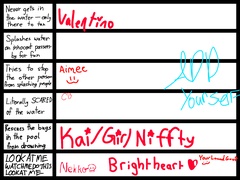 Never gets in
the water — only
there to tan
Valentino
Splashes water
on innocent passers
by for fun
Tries to stop
the other person
from splashing people
Aimee
Literally SCARED
of the water
Yourself
Rescues the bugs
in the pool
from drowning
Kai/Girl/Niffty
LOOK AT ME
WATCH ME DO THIS
LOOK AT ME!
Nekko
Brightheart